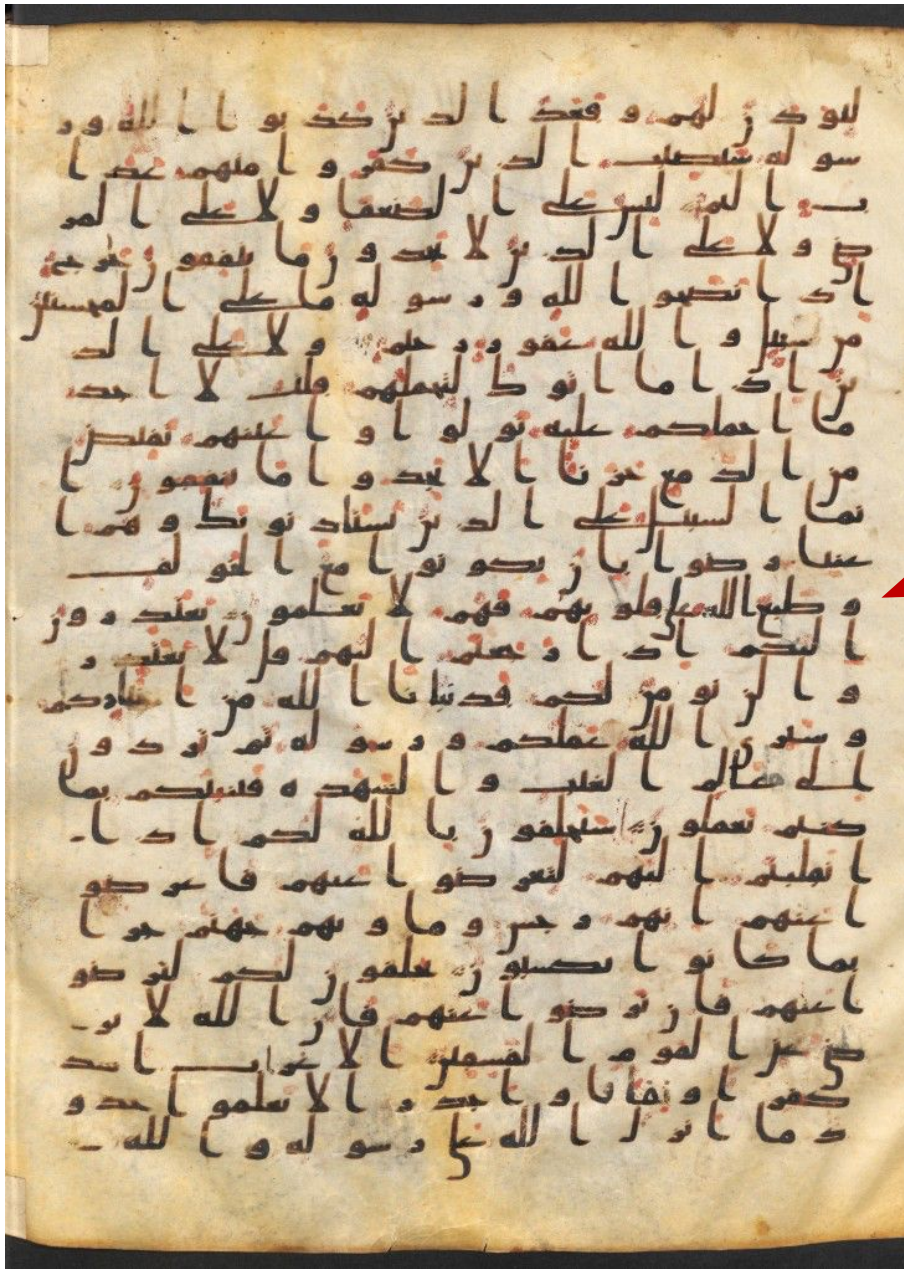 ليوذن لهم وقعد الذين كذبوا الله ور
سوله سيصيب الذين كفروا منهم عذا
ب اليم ليس على الضعفا ولا على المر
ضى ولا على الذين لا يجدون ما ينفقون حرج
اذا نصحوا لله ورسوله ما على المحسنين
من سبيل والله غفور رحيم ولا على الذ
ين اذا ما اتوك لتحملهم قلت لا اجد
ما احملكم عليه تولوا واعينهم تفيض
من الدمع حزنا الا يجدوا ما ينفقون ا
نما السبيل على الذين يستاذنونك وهم ا
غنيا رضوا بان يكونوا مع الخولف
وطبع الله على قلوبهم فهم لا يعلمون يعتذرون
اليكم اذا رجعتم اليهم قل لا تعتذر
وا لن نومن لكم قد نبانا الله من اخباركم
وسيرى الله عملكم ورسوله ثم تردون
الى عالم الغيب والشهدة فينبيكم بما
كنتم تعملون سيحلفون بالله لكم اذا
انقلبتم اليهم لتعرضوا عنهم فاعرضو
ا عنهم انهم رجس وماويهم جهنم جزا
بما كانوا يكسبون يحلفون لكم لترضو
ا عنهم فان ترضوا عنهم فان الله لا ير
ضى عن القوم الفسقين الاعراب اشد
كفرا ونفاقا واجدر الا يعلموا حدو
د ما انزل الله على رسوله والله